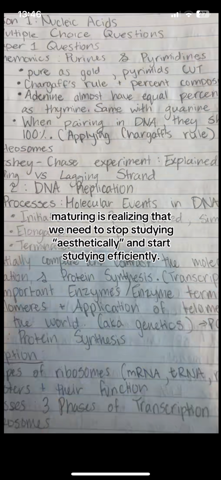 13:46
on 1 Nucleic Acids
ultiple Choice Questions
per 1 Questions
nemonics Purines & Pyrimidines
• pure as gold, pyrimids CUT
• Chargaff's rule, percent compos
• Adenine almost have equal percen
as thymine. Same with guanine
• When pairing in DNA they
100%. (Applying Chargaffs role)
cleosomes
rshey-Chase experiment: Explained
ing vs Lagging Strand
2: DNA Replication
Processes: Molecular Events in DNA
• Initia
• Elong
• Termi
maturing is realizing that
we need to stop studying
"aesthetically" and start
studying efficiently.
tially the mole
ation, & Protein Synthesis. (Transcrip
mportant Enzymes/Enzyme term
lomeres + Application of telome
the world (aka genetics)
Protein Synthesis
ption
pes of ribosomes (mRNA, tRNA,
+ their function
3 Phases of Transcription
osomes